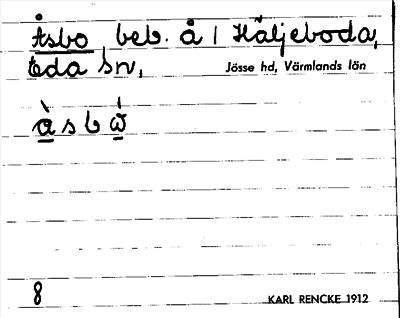 Åsbo beb. å 1 Häljeboda,
Eda sn,
Jösse hd, Värmlands län
à s b ὼ
8
KARL RENCKE 1912